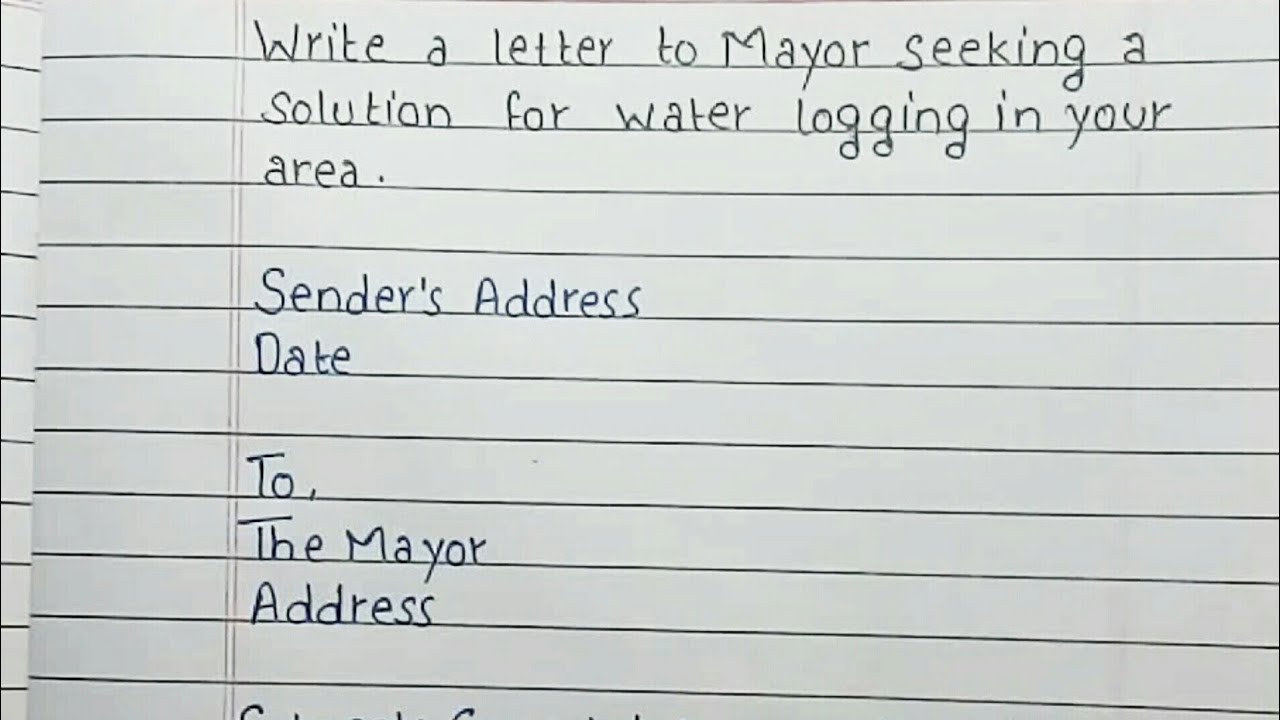 Write a letter to Mayor seeking a
solution for water logging in your
area.
Sender's Address
Date
To,
The Mayor
Address